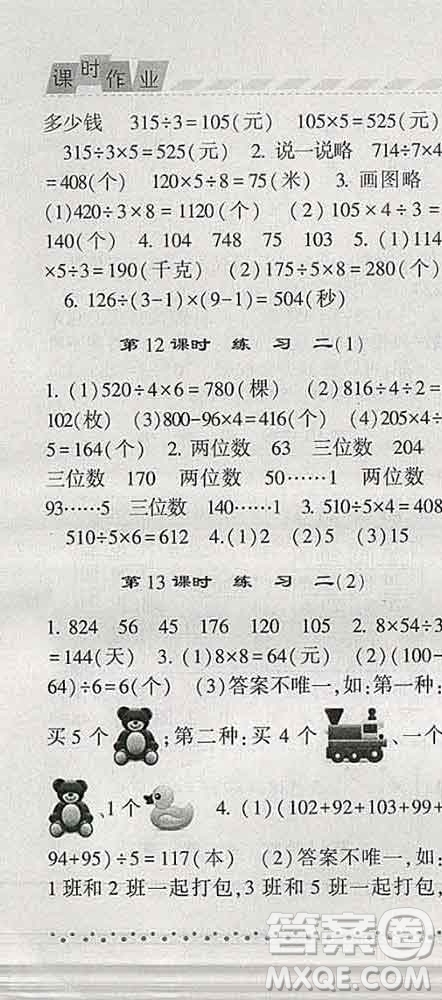 课时作业
多少钱 315÷3=105(元) 105×5=525(元)
315÷3×5=525(元) 2. 说一说略 714÷7×4
=408(个) 120×5÷8=75(米) 3. 画图略
(1)420÷3×8=1120(个) (2)105×4÷3=
140(个) 4. 104 748 75 103 5. (1)114
×5÷3=190(千克) (2)175÷5×8=280(个)
6. 126÷(3-1)×(9-1)=504(秒)
第12课时 练习二(1)
1. (1)520÷4×6=780(棵) (2)816÷4÷2=
102(枚) (3)800-96×4=416(个) (4)205×4÷
5=164(个) 2. 两位数 63 三位数 204
三位数 170 两位数 50……1 两位数
93……5 三位数 140……1 3. 510÷5×4=408
510÷5×6=612 4. (1)2 (2)5 (3)15
第13课时 练习二(2)
1. 824 56 45 176 120 105 2. 8×54÷3
=144(天) 3. (1)8×8=64(元) (2)(100-
64)÷6=6(个) (3)答案不唯一,如:第一种:
买5个;第二种:买4个、一个
、1个 4. (1)(102+92+103+99+
94+95)÷5=117(本) (2)答案不唯一,如:
1班和2班一起打包,3班和5班一起打包,
答案圈
MXQE.COM